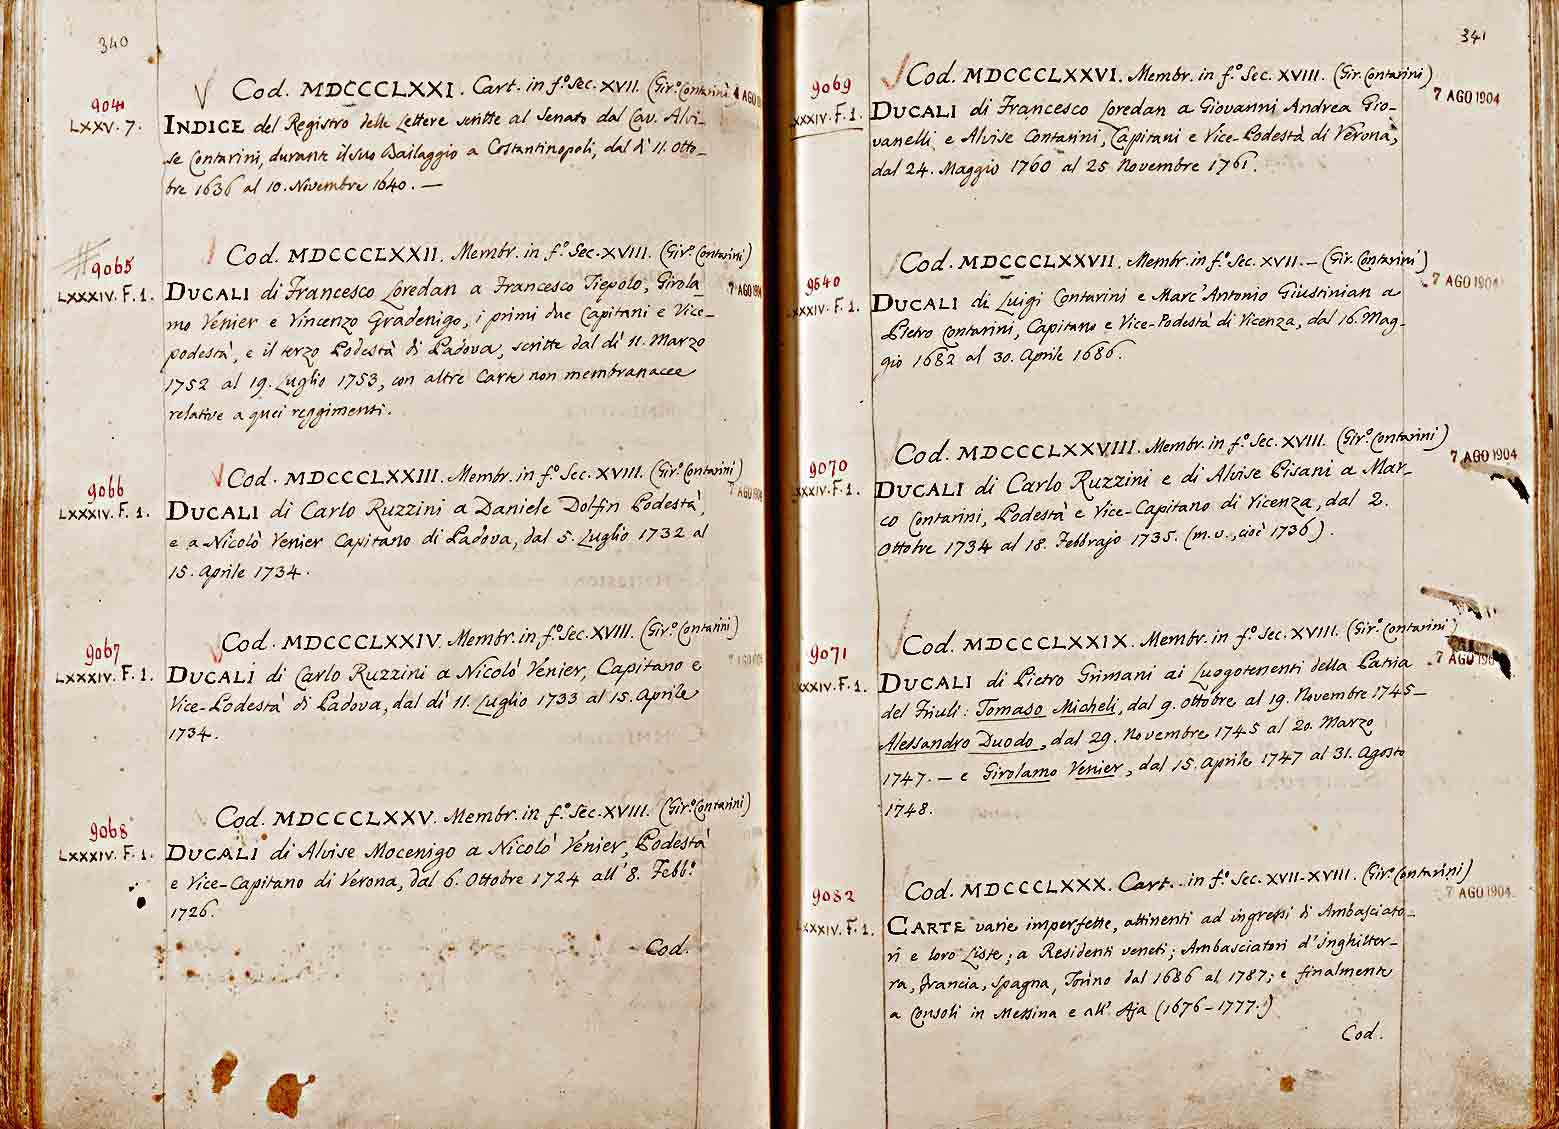 340
Cod. MDCCCLXXI. Cart. in f.º Sec. XVII. (Gir.º Contarini)
904
LXXV. 7.
INDICE del Registro delle Lettere scritte al Senato dal Cav. Alvi-
se Contarini, durante il suo Bailaggio a Costantinopoli, dal dì 11. Otto-
bre 1636 al 10. Novembre 1640. —
Cod. MDCCCLXXII. Membr. in f.º Sec. XVIII. (Gir.º Contarini)
9065
LXXXIV. F. 1.
7 AGO 1904
DUCALI di Francesco Loredan a Francesco Tiepolo, Girola-
mo Venier e Vincenzo Gradenigo, i primi due Capitani e Vice-
podestà, e il terzo Podestà di Padova, scritte dal dì 11. Marzo
1752 al 19. Luglio 1753, con altre Carte non membranacee
relative a quei reggimenti.
Cod. MDCCCLXXIII. Membr. in f.º Sec. XVIII. (Gir.º Contarini)
9066
LXXXIV. F. 1.
7 AGO 1904
DUCALI di Carlo Ruzzini a Daniele Dolfin Podestà,
e a Nicolò Venier Capitano di Padova, dal 5. Luglio 1732 al
15. Aprile 1734.
Cod. MDCCCLXXIV. Membr. in f.º Sec. XVIII. (Gir.º Contarini)
9067
LXXXIV. F. 1.
DUCALI di Carlo Ruzzini a Nicolò Venier, Capitano e
Vice-Podestà di Padova, dal dì 11. Luglio 1733 al 15. Aprile
1734.
Cod. MDCCCLXXV. Membr. in f.º Sec. XVIII. (Gir.º Contarini)
9068
LXXXIV. F. 1.
DUCALI di Alvise Mocenigo a Nicolò Venier, Podestà
e Vice-Capitano di Verona, dal 6. Ottobre 1724 all' 8. Febb.º
1726.
Cod.
341
Cod. MDCCCLXXVI. Membr. in f.º Sec. XVIII. (Gir. Contarini)
9069
LXXXIV. F. 1.
7 AGO 1904
DUCALI di Francesco Loredan a Giovanni Andrea Gio-
vanelli e Alvise Contarini, Capitani e Vice-Podestà di Verona,
dal 24. Maggio 1760 al 25 Novembre 1761.
Cod. MDCCCLXXVII. Membr. in f.º Sec. XVII. — (Gir. Contarini)
9640
LXXXIV. F. 1.
7 AGO 1904
DUCALI di Luigi Contarini e Marc'Antonio Giustinian a
Pietro Contarini, Capitano e Vice-Podestà di Vicenza, dal 16. Mag-
gio 1682 al 30. Aprile 1686.
Cod. MDCCCLXXVIII. Membr. in f.º Sec. XVIII. (Gir.º Contarini)
9070
LXXXIV. F. 1.
7 AGO 1904
DUCALI di Carlo Ruzzini e di Alvise Pisani a Mar-
co Contarini, Podestà e Vice-Capitano di Vicenza, dal 2.
Ottobre 1734 al 18. Febbrajo 1735. (m.v., cioè 1736).
Cod. MDCCCLXXIX. Membr. in f.º Sec. XVIII. (Gir.º Contarini)
9071
LXXXIV. F. 1.
7 AGO 1904
DUCALI di Pietro Grimani ai Luogotenenti della Patria
del Friuli: Tomaso Micheli, dal 9. Ottobre al 19. Novembre 1745 —
Alessandro Duodo, dal 29. Novembre 1745 al 20. Marzo
1747. — e Girolamo Venier, dal 15. Aprile 1747 al 31. Agosto
1748.
Cod. MDCCCLXXX. Cart. in f.º Sec. XVII-XVIII. (Gir.º Contarini)
9082
LXXXIV. F. 1.
7 AGO 1904
CARTE varie imperfette, attinenti ad ingressi di Ambasciato-
ri e loro Liste; a Residenti veneti; Ambasciatori d'Inghilter-
ra, Francia, Spagna, Torino dal 1686 al 1787; e finalmente
a Consoli in Messina e all' Aja (1676-1777.)
Cod.